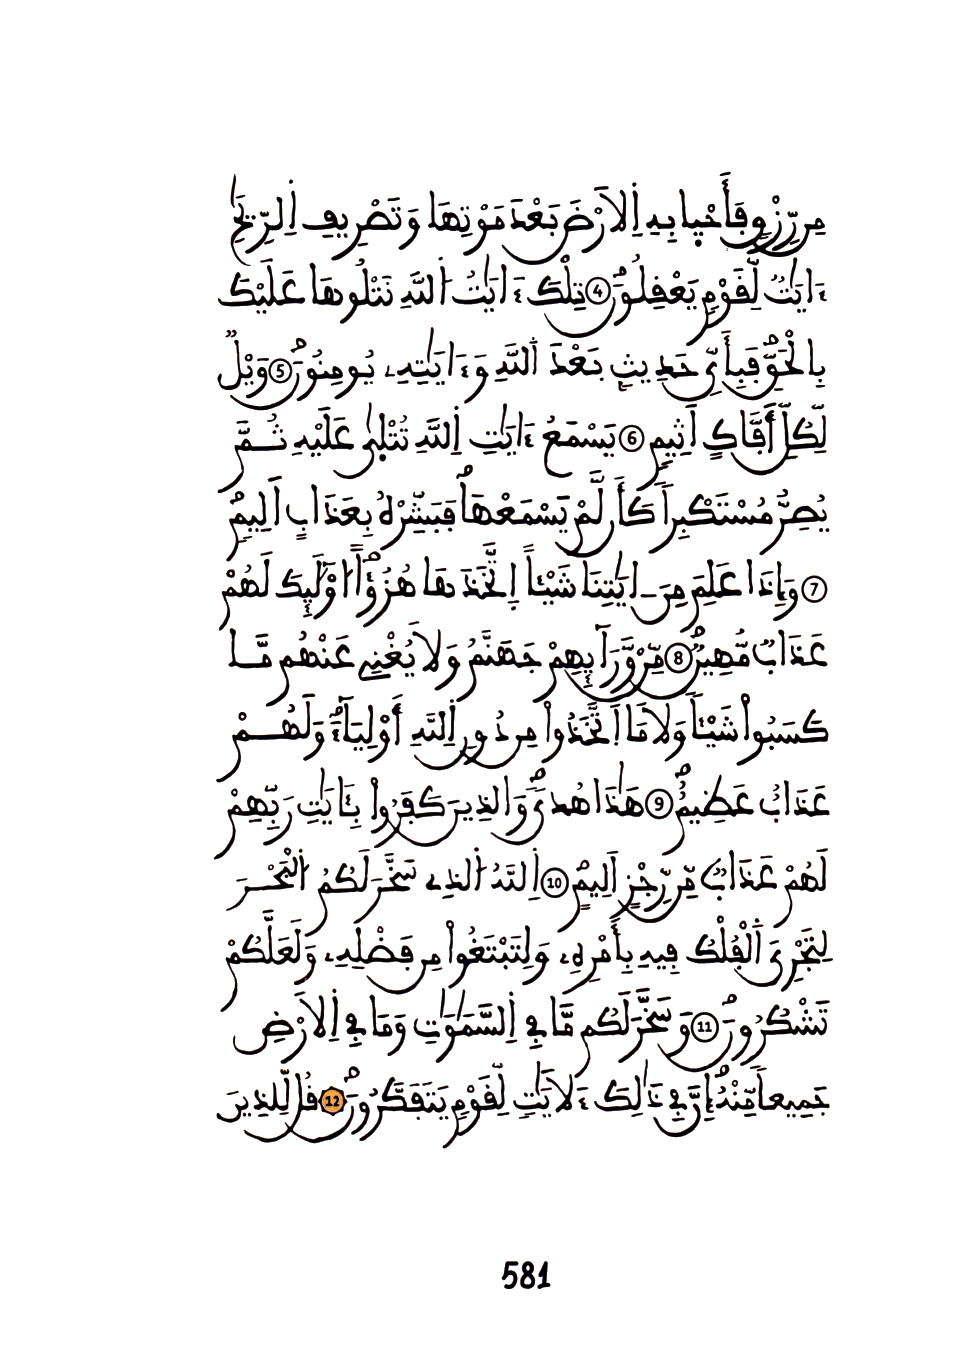 مِن رِّزْقٖ فَأَحْيٜا بِهِ اِ۬لَارْضَ بَعْدَ مَوْتِهَا وَتَصْرِيفِ اِ۬لرِّيَٰحِ
ءَايَٰتٞ لِّقَوْمٖ يَعْقِلُونَۖ 4 تِلْكَ ءَايَٰتُ اُ۬للَّهِ نَتْلُوهَا عَلَيْكَ
بِالْحَقِّۖ فَبِأَيِّ حَدِيثِۢ بَعْدَ اَ۬للَّهِ وَءَايَٰتِهِۦ يُومِنُونَۖ 5 وَيْلٞ
لِّكُلِّ أَفَّاكٍ اَثِيمٖ 6 يَسْمَعُ ءَايَٰتِ اِ۬للَّهِ تُتْلٜىٰ عَلَيْهِ ثُمَّ
يُصِرُّ مُسْتَكْبِراٗ كَأَن لَّمْ يَسْمَعْهَاۖ فَبَشِّرْهُ بِعَذَابٍ اَلِيمٖۖ
7 وَإِذَا عَلِمَ مِنَ اٰيَٰتِنَا شَيْـٔاً اِ۪تَّخَذَهَا هُزُؤاًۖ ا۟وْلَٰٓئِكَ لَهُمْ
عَذَابٞ مُّهِينٞۖ 8 مِّنْ وَّرَآئِهِمْ جَهَنَّمُ وَلَا يُغْنِے عَنْهُم مَّا
كَسَبُواْ شَيْـٔاٗ وَلَا مَا اَ۪تَّخَذُواْ مِن دُونِ اِ۬للَّهِ أَوْلِيَآءَۖ وَلَهُمْ
عَذَابٌ عَظِيمٌۖ 9 هَٰذَا هُدىٗۖ وَالذِينَ كَفَرُواْ بِـَٔايَٰتِ رَبِّهِمْ
لَهُمْ عَذَابٞ مِّن رِّجْزٍ اَلِيمٍۖ 10 اِ۬للَّهُ اُ۬لذِے سَخَّرَ لَكُمُ اُ۬لْبَحْرَ
لِتَجْرِيَ اَ۬لْفُلْكُ فِيهِ بِأَمْرِهِۦ وَلِتَبْتَغُواْ مِن فَضْلِهِۦ وَلَعَلَّكُمْ
تَشْكُرُونَۖ 11 وَسَخَّرَ لَكُم مَّا فِے اِ۬لسَّمَٰوَٰتِ وَمَا فِے اِ۬لَارْضِ
جَمِيعاٗ مِّنْهُۖ إِنَّ فِے ذَٰلِكَ ءَلَايَٰتٖ لِّقَوْمٖ يَتَفَكَّرُونَۖ 12 قُل لِّلذِينَ
581